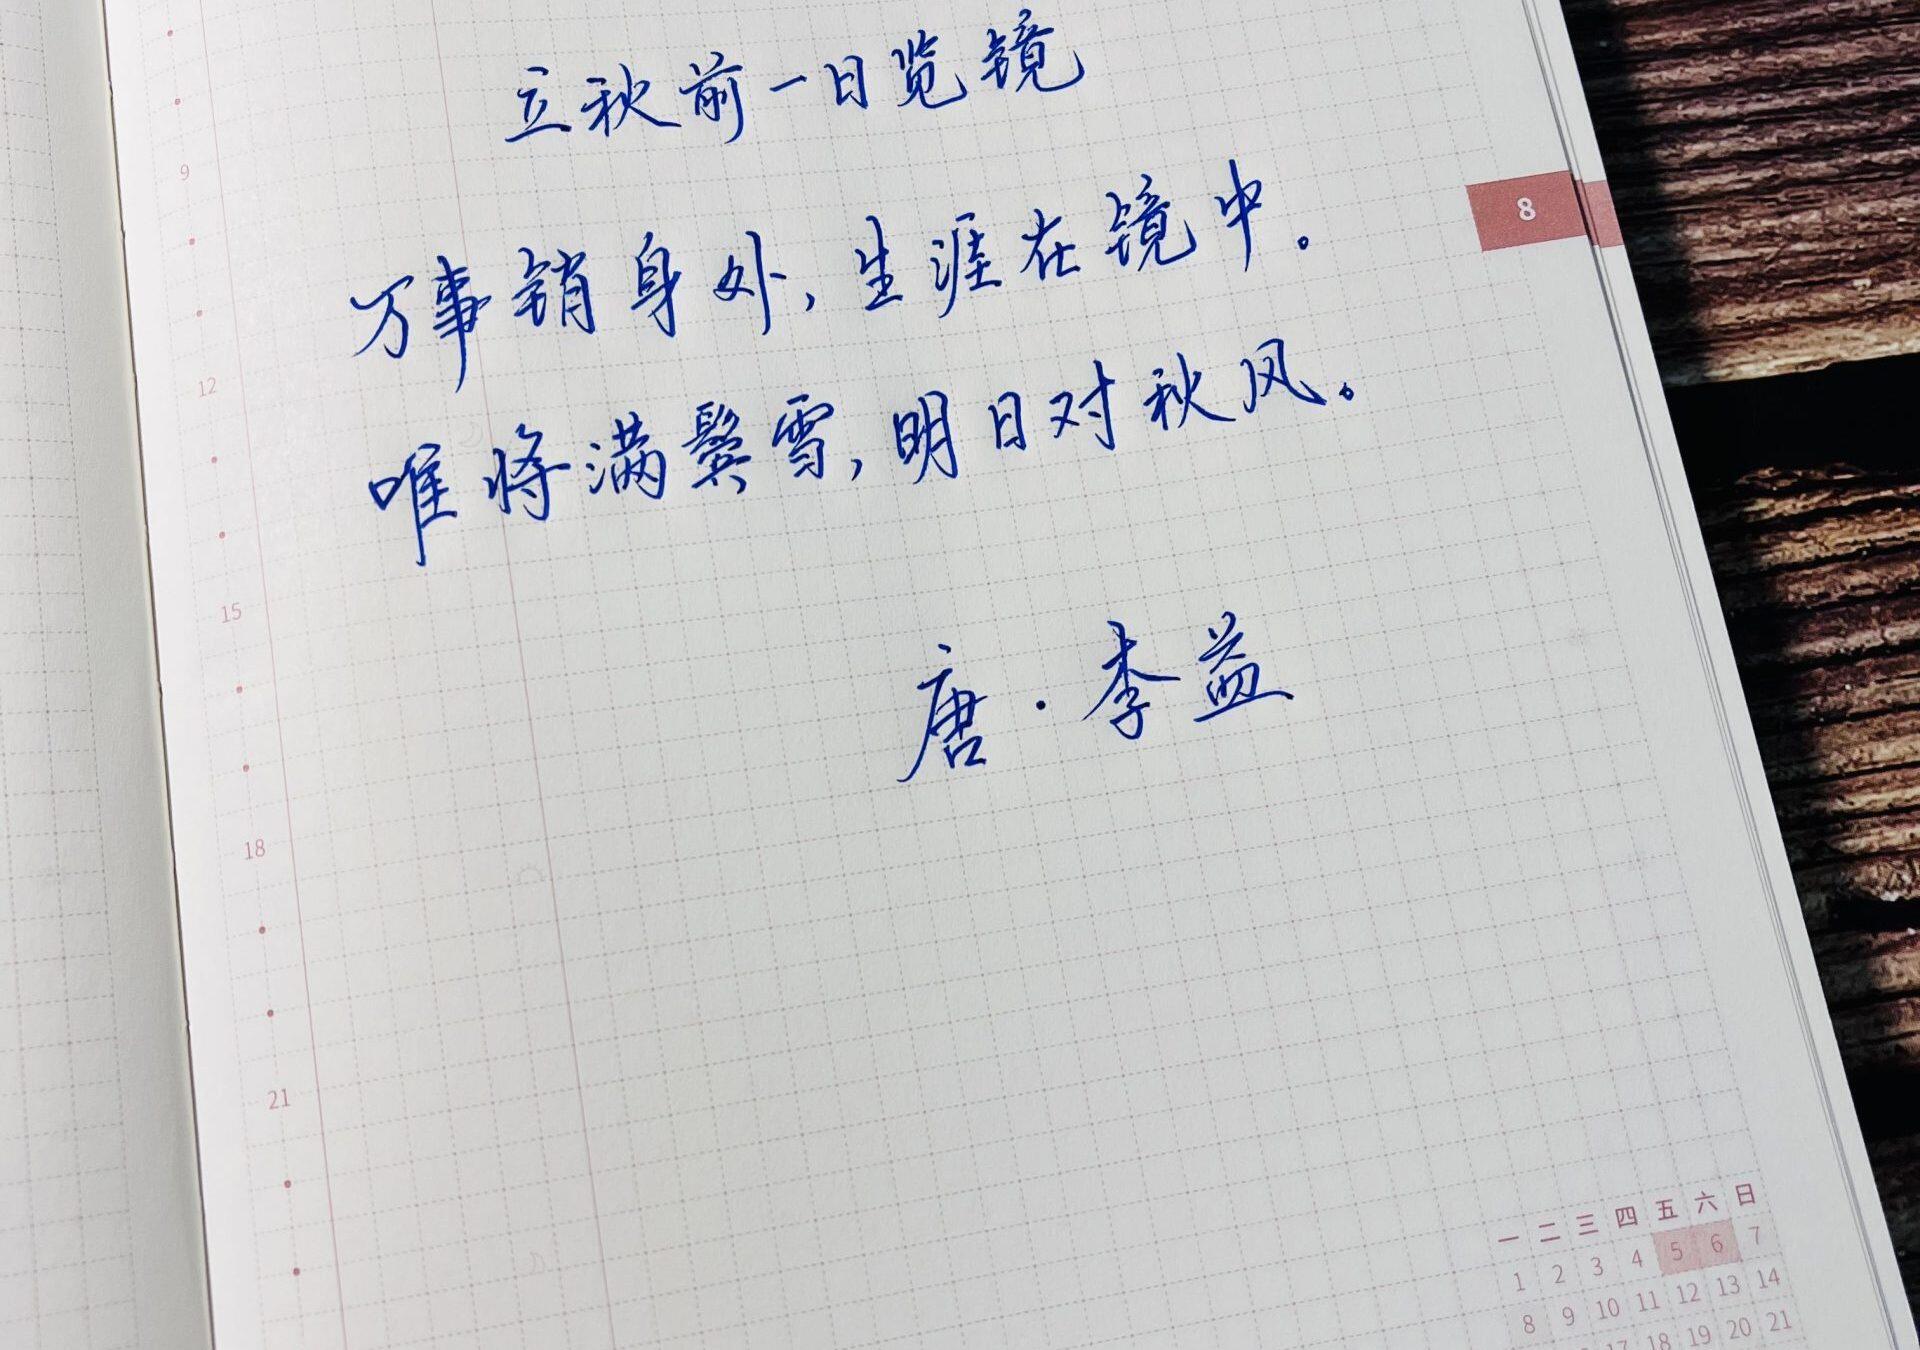 立秋前一日览镜
万事销身处，生涯在镜中。
唯将满鬓雪，明日对秋风。
唐·李益
8
9
12
15
18
21
一 二 三 四 五 六 日
1 2 3 4 5 6 7
8 9 10 11 12 13 14
17 18 19 20 21